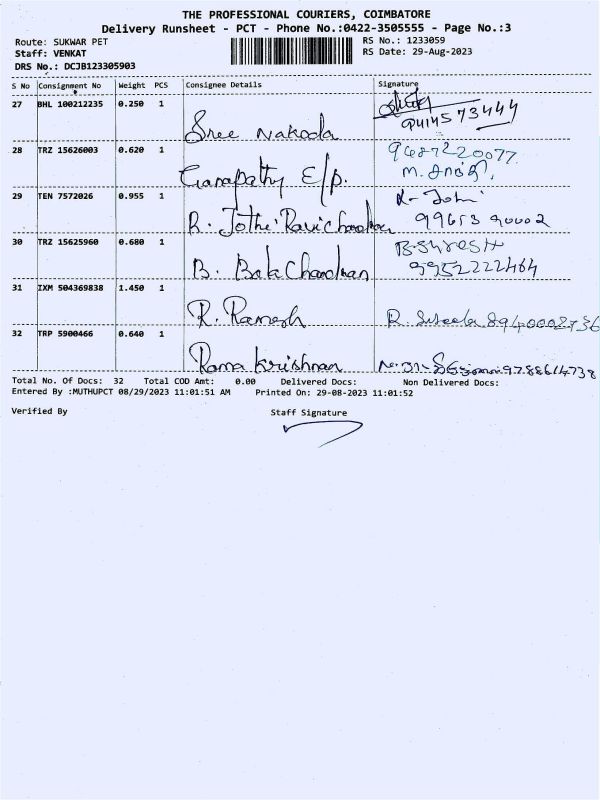 THE PROFESSIONAL COURIERS, COIMBATORE
Delivery Runsheet - PCT - Phone No.:0422-3505555 - Page No.:3
Route: SUKWAR PET RS No.: 1233059
Staff: VENKAT RS Date: 29-Aug-2023
DRS No.: DCJB123305903
S No Consignment No Weight PCS Consignee Details Signature
27 BHL 100212235 0.250 1
Sree Nakoda 9414573444
28 TRZ 15626003 0.620 1 9487220077
Ganapathy E/p. M.
29 TEN 7572026 0.955 1
R. Jothi Ravichandran 99653 90002
30 TRZ 15625960 0.680 1 B. SURESH
B. Bala Chandran 9952222464
31 IXM 504369838 1.450 1
R. Ramesh R. Suseela 8940002736
32 TRP 5900466 0.640 1
Rama Krishnan 9788614738
Total No. Of Docs: 32 Total COD Amt: 0.00 Delivered Docs: Non Delivered Docs:
Entered By :MUTHUPCT 08/29/2023 11:01:51 AM Printed On: 29-08-2023 11:01:52
Verified By Staff Signature